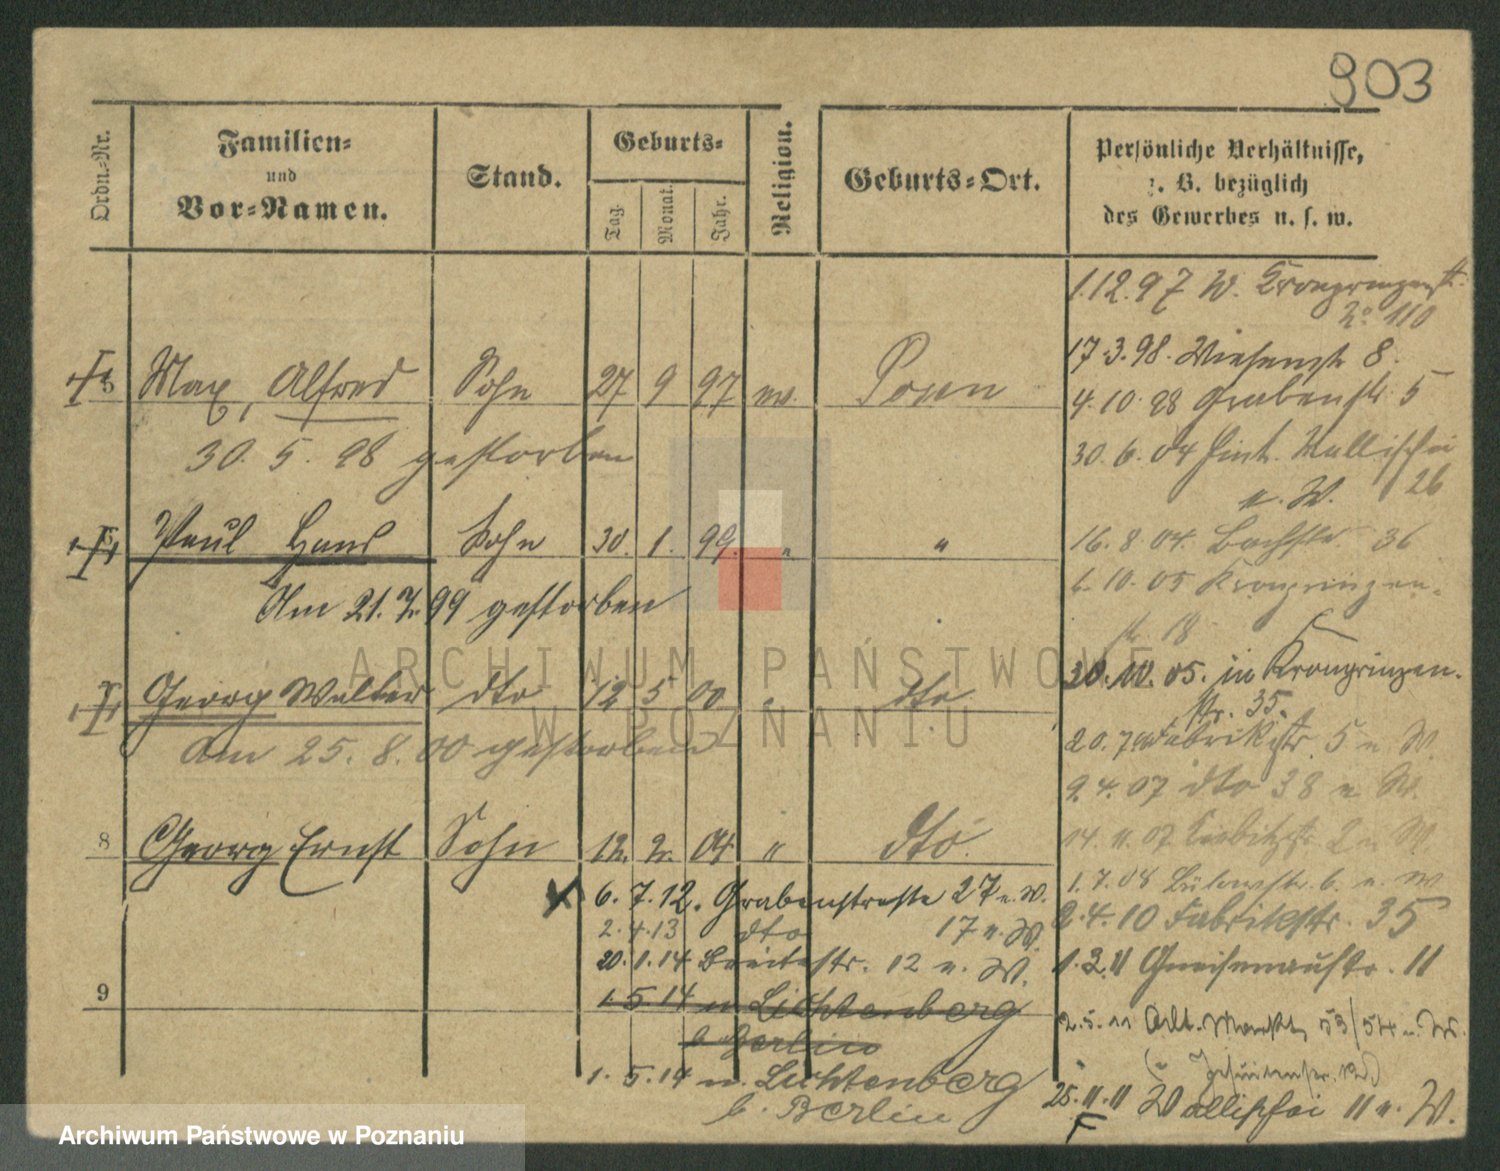 903
Ordn.-Nr.
Familien-
und
Vor-Namen.
Stand.
Geburts-
Tag.
Monat.
Jahr.
Religion.
Geburts-Ort.
Persönliche Verhältnisse,
z. B. bezüglich
des Gewerbes u. s. w.
1.12.97 W. Kronprinzenstr.
No 110
17.3.98. Wiesenstr 8.
5 Max, Alfred Sohn 27 9 97 ev. Posen
4.10.98 Grabenstr 5
30. 5. 98 gestorben
30.6.04 Hint. Wallischei
26
n. W.
6 Paul Hans Sohn 30. 1. 99. " "
16.8.04. Bachstr. 36
Am 21. 7. 99 gestorben
6.10.05 Kronprinzen-
str. 18
Georg Walter dto 12 5 00 " dto
30.11.05. in Kronprinzen-
str. 35.
Am 25. 8. 00 gestorben
20.7. Fabrikstr. 5 n. W.
9.4.07 dto 38 n W.
8 Georg Ernst Sohn 12. 2. 04 " dto.
14.11.07 2 n W.
6.7.12. Grabenstraße 27 n. W.
1.7.08 Bülowstr. 6. n. W
2.4.13 dto 17 n. W.
2.4.10 Fabrikstr. 35
20.1.14 Breitestr. 12 n. W.
1.3.11 Gneisenaustr. 11
9
1.5.14 n Lichtenberg
b Berlin
2.5.11 Alt. Markt, 53/54 n. W.
1. 5.14 n. Lichtenberg
b. Berlin
(Jesuitenstr.
25.11.11 Wallischei 11 n. W.
F
ARCHIWUM PAŃSTWOWE
W POZNANIU
Archiwum Państwowe w Poznaniu